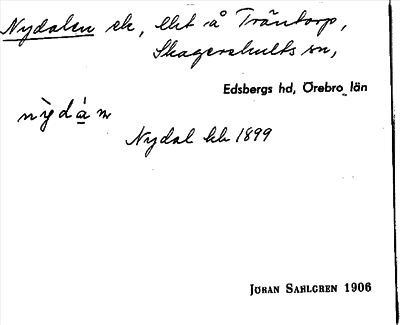 Nydalen ek, lht å Träntorp,
Skagershults sn,
Edsbergs hd, Örebro län
nỳdá̱n
Nydal kb 1899
JÖRAN SAHLGREN 1906